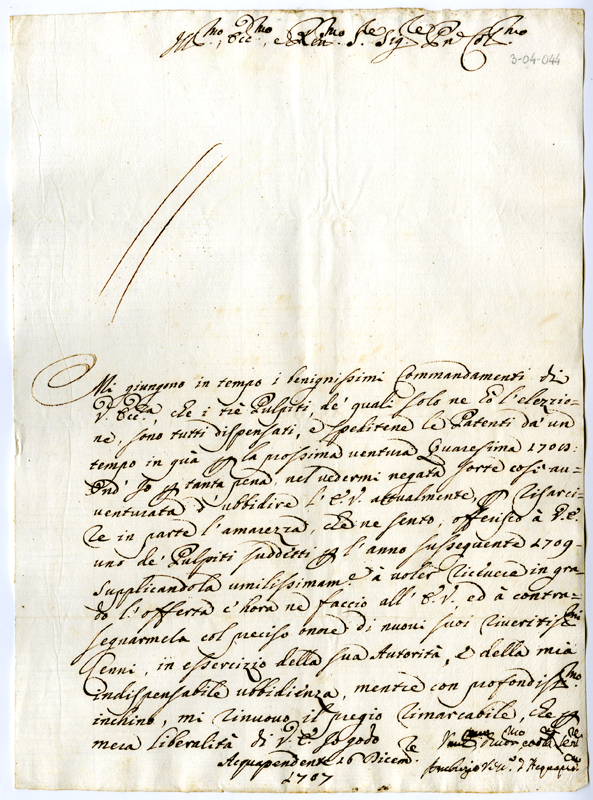 Ill.mo, Ecc.mo, e Rev.mo S.re Sig.re P.ne Col.mo
3-04-044
Mi giungono in tempo i benignissimi Commandamenti di
V. Ecc.za, che i trè Pulpiti, de' quali solo ne hò l'elezzio-
ne, sono tutti dispensati, e speditene le Patenti dà un
tempo in quà per la prossima ventura Quaresima 1708:
Ond' Io per tanta pena, nel vedermi negata sorte così av-
venturata d'ubbidire l'E.V. attualmente, per risarci-
re in parte l'amarezza, che ne sento, offerisco à V.E.
uno de' Pulpiti suddetti per l'anno susseguente 1709.
Supplicandola umilissimam.e à voler ricevere in gra-
do l'offerta c'hora ne faccio all'E.V., ed à contra-
segnarmela col preciso onore di nuovi suoi riveritiss.mi
Cenni, in essercizio della sua Autorità, e della mia
indispensabile ubbidienza, mentre con profondiss.mo
inchino, mi rinuovo il pregio rimarcabile, che per
mera liberalità di V.E. Io godo
Acquapendente 16 Dicem.re
1707
Ambrogio Vesc.o d'Acquap.te